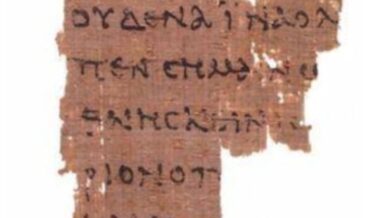 ΟΥΔΕΝΑΪΝΑΟΛ
ΠΕΝϹΗΜΑΙΝΩ
ΘΝΗϹΚΕΙΝΙϹ
ΡΙΟΝΟΠ